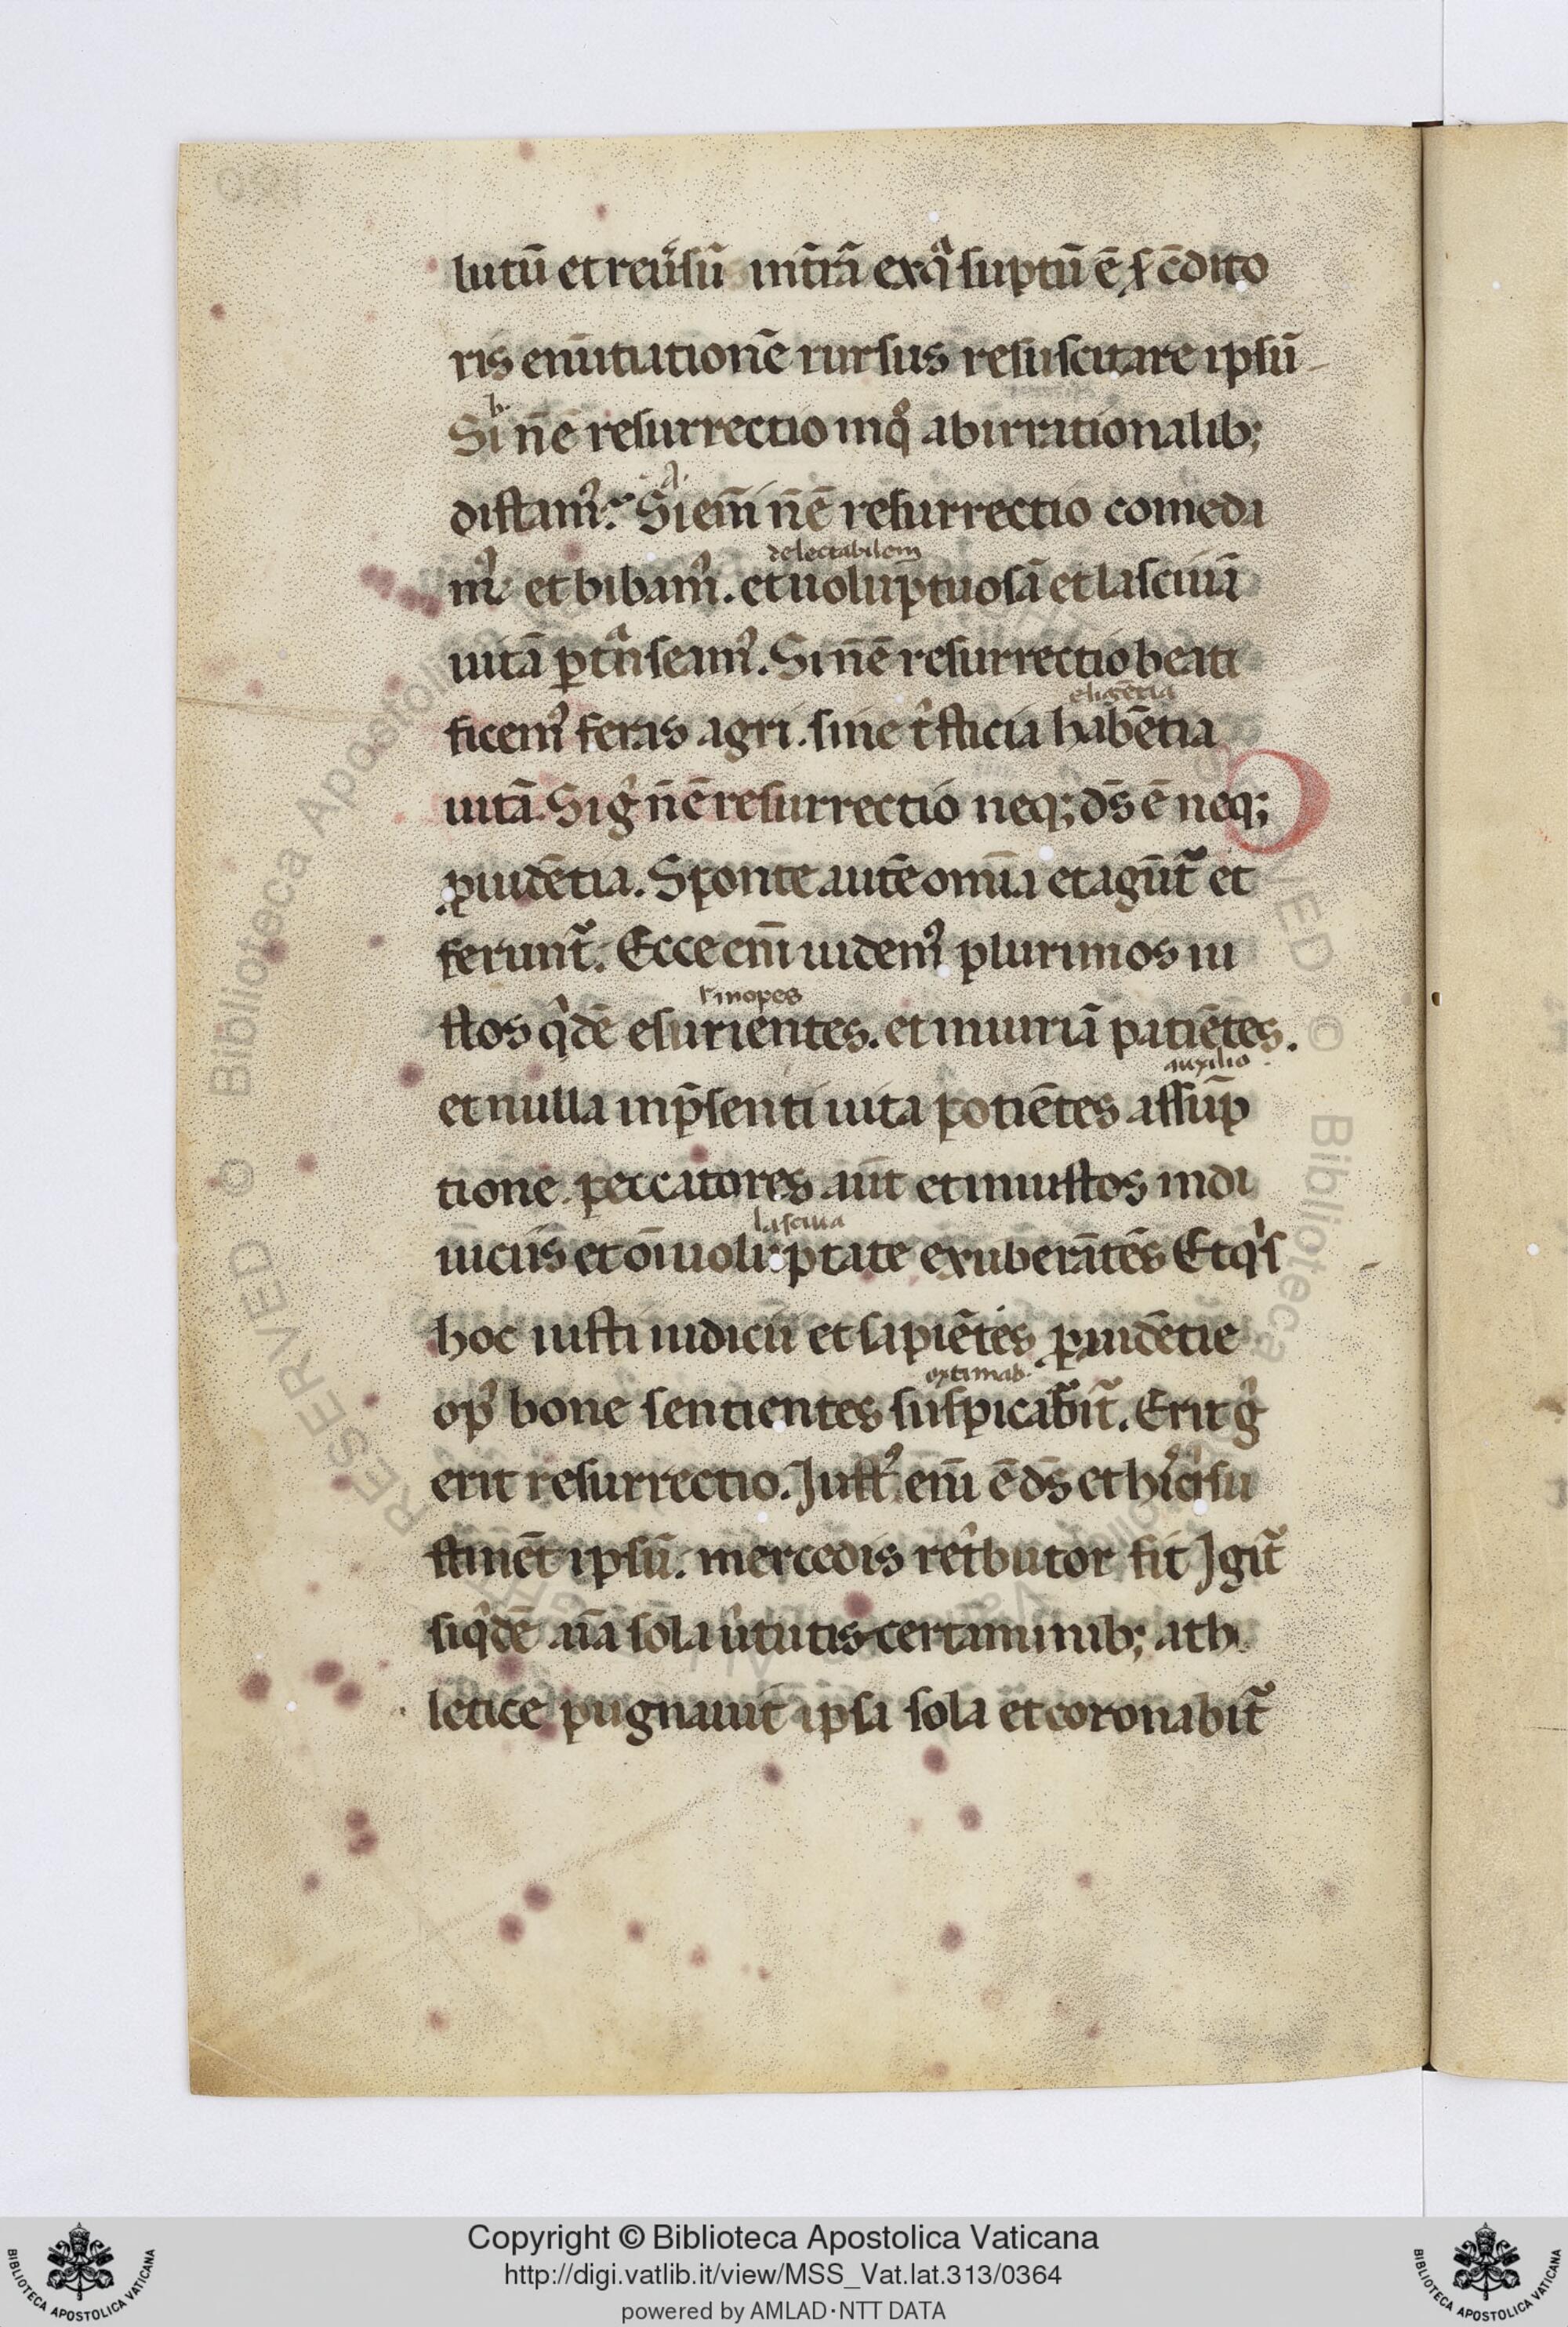 lutū et reuˀsū in tˀrā ex qͣ suptū ē ẜ cōdito
ris enūtiationē rursus resuscitare ipsū
b.
Si n̄ ē resurrectio in qͦ ab irrationalib;
a.
distamꝰ. Si eni̅ n̄ ē resurrectio comeda
mꝰ et bibamꝰ. et uoluptuosā et lasciuā
delectabilem
uitā ꝑtͣnseamꝰ. Si n̄ ē resurrectio beati
ficemꝰ feras agri. sine tⁱsticia habētia
uitā. Si gͦ n̄ ē resurrectio neq; ds̄ ē neq;
ꝓuidētia. Sponte autē omīa et agūt᷑ et
ferunt᷑. Ecce eni̅ uidemꝰ plurimos iu
inopes
stos qⁱdē esurientes. et iniuriā patiētes.
auxilio
et nulla in p̄senti uita potiētes assūp
tione. peccatores aūt et iniustos in di
lasciua
uiciis et oī uoluptate exuberātes Et qⁱs
hoc iusti iudicii et sapiētes ꝓuidētie
opꝰ bone sentientes suspicabit᷑. Erit gͦ
erit resurrectio. Justꝰ eni̅ ē ds̄ et hiˢ qⁱ su
stinēt ipsū. mercedis retⁱbutor fit Jgit᷑
siqⁱdē aīa sola uⁱtutis certaminib; ath
letice pugnauit ipsa sola et coronabit᷑
Copyright © Biblioteca Apostolica Vaticana
http://digi.vatlib.it/view/MSS_Vat.lat.313/0364
powered by AMLAD·NTT DATA
BIBLIOTECA APOSTOLICA VATICANA
BIBLIOTECA APOSTOLICA VATICANA